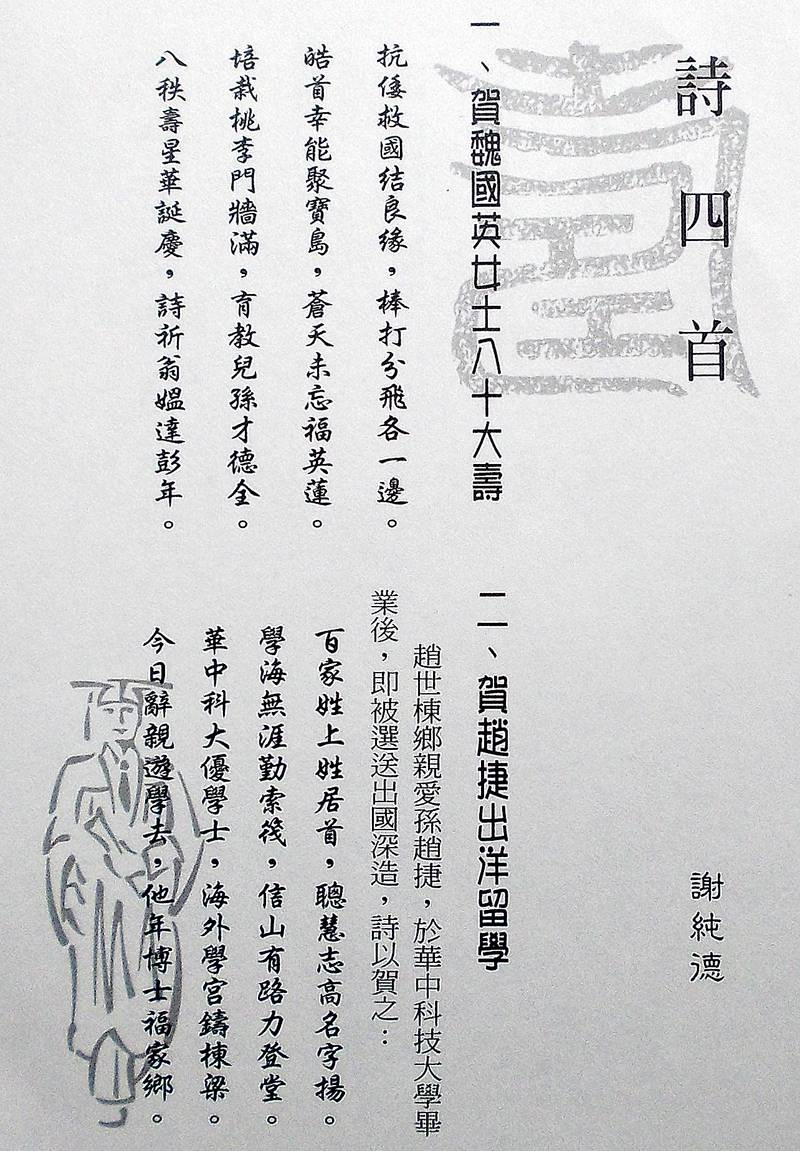 詩四首
謝純德
一、賀魏國英女士八十大壽
抗倭救國結良緣，棒打分飛各一邊。
皓首幸能聚寶島，蒼天未忘福英蓮。
培栽桃李門牆滿，育教兒孫才德全。
八秩壽星華誕慶，詩祈翁媼達彭年。
二、賀趙捷出洋留學
趙世棟鄉親愛孫趙捷，於華中科技大學畢
業後，即被選送出國深造，詩以賀之：
百家姓上姓居首，聰慧志高名字揚。
學海無涯勤索筏，信山有路力登堂。
華中科大優學士，海外學宮鑄棟梁。
今日辭親遊學去，他年博士福家鄉。
壽